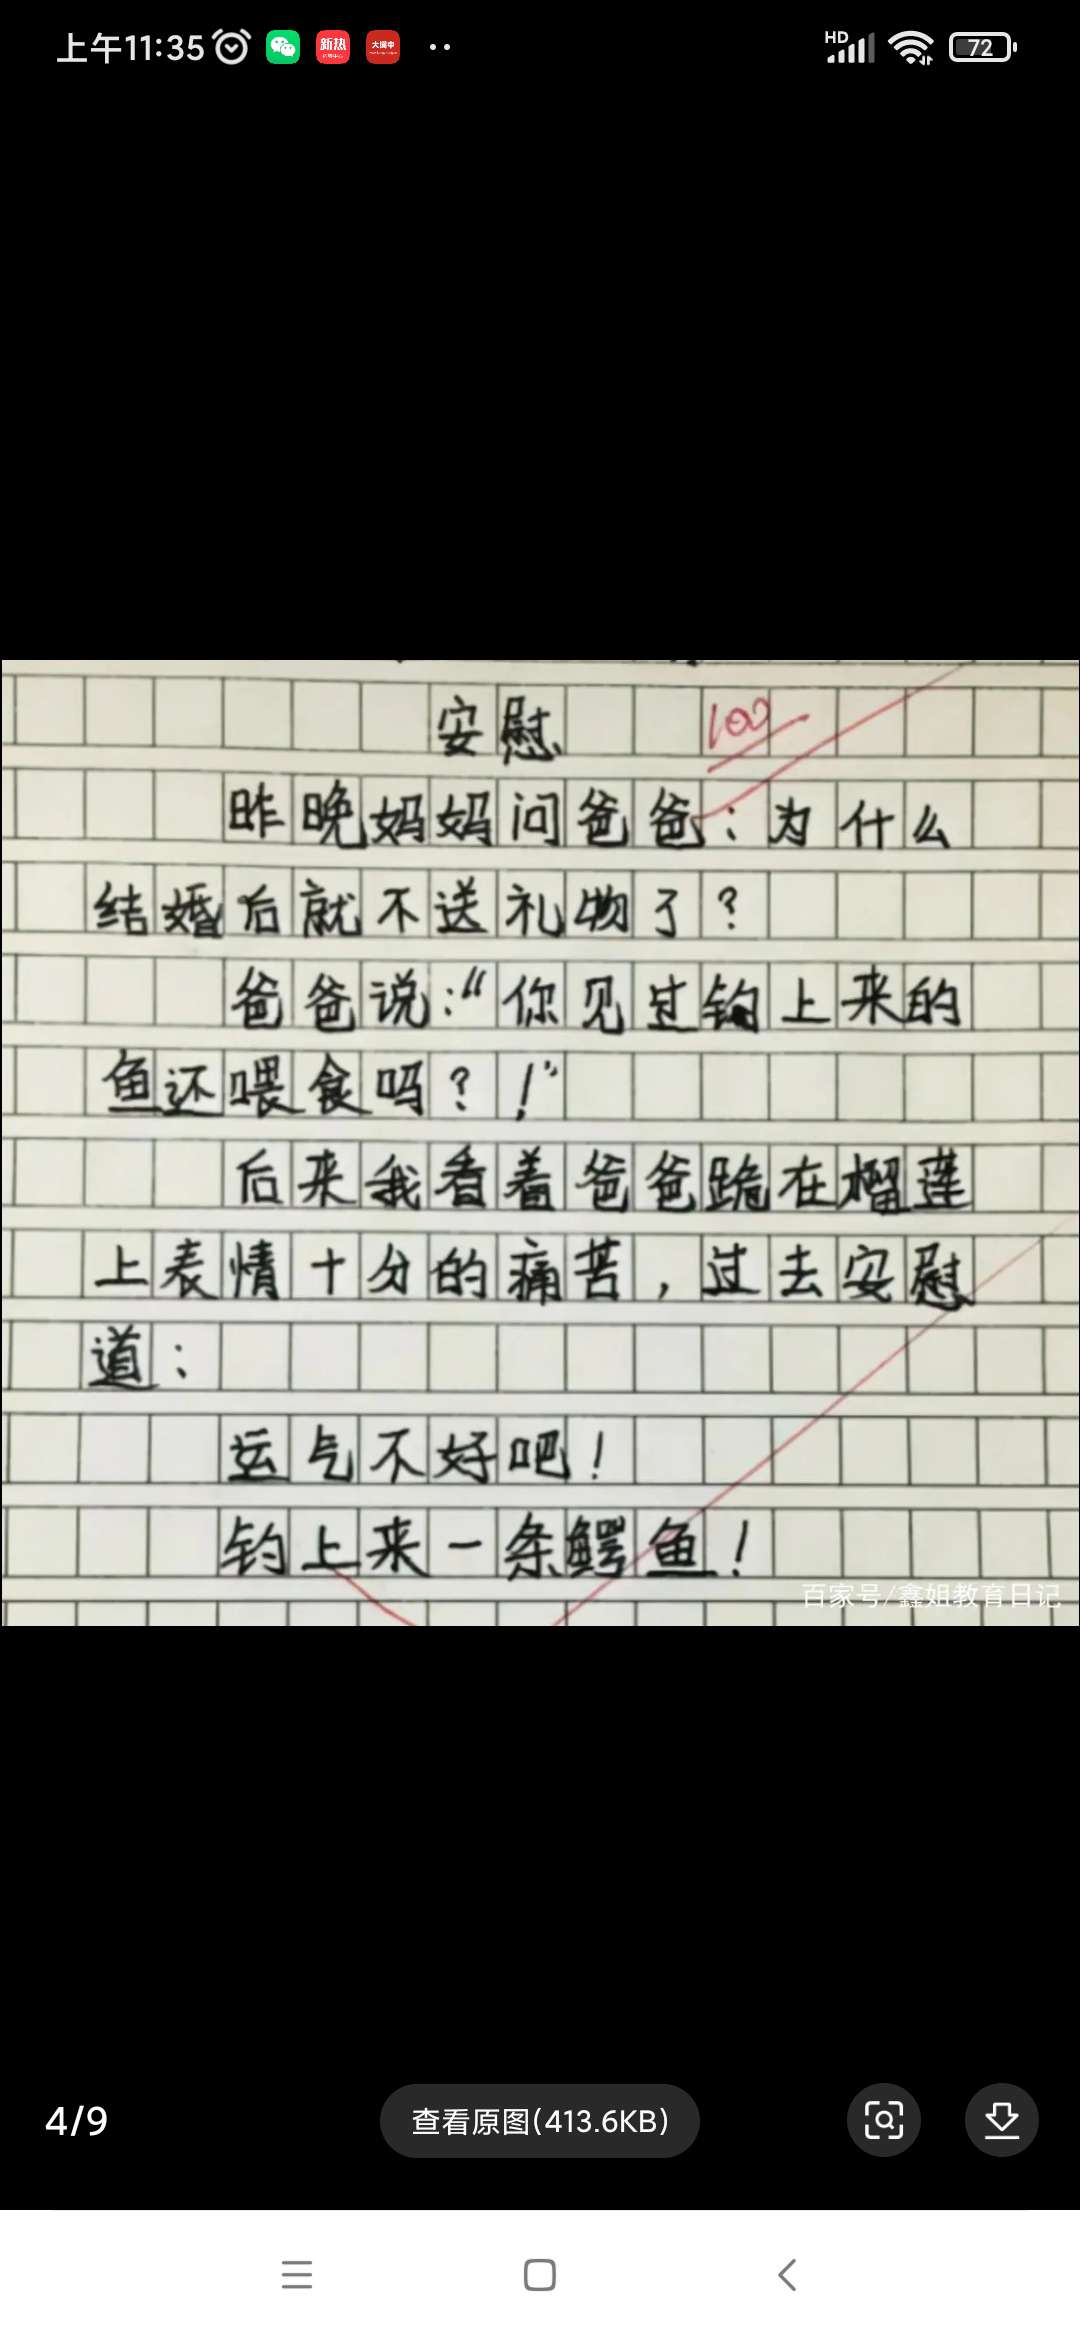 上午11:35
HD
72
新热
安慰
100
昨晚妈妈问爸爸:为什么
结婚后就不送礼物了?
爸爸说:“你见过钩上来的
鱼还喂食吗?!”
后来我看着爸爸跪在榴莲
上表情十分的痛苦,过去安慰
道:
运气不好吧!
钓上来一条鳄鱼!
百家号/鑫姐教育日记
4/9
查看原图(413.6KB)